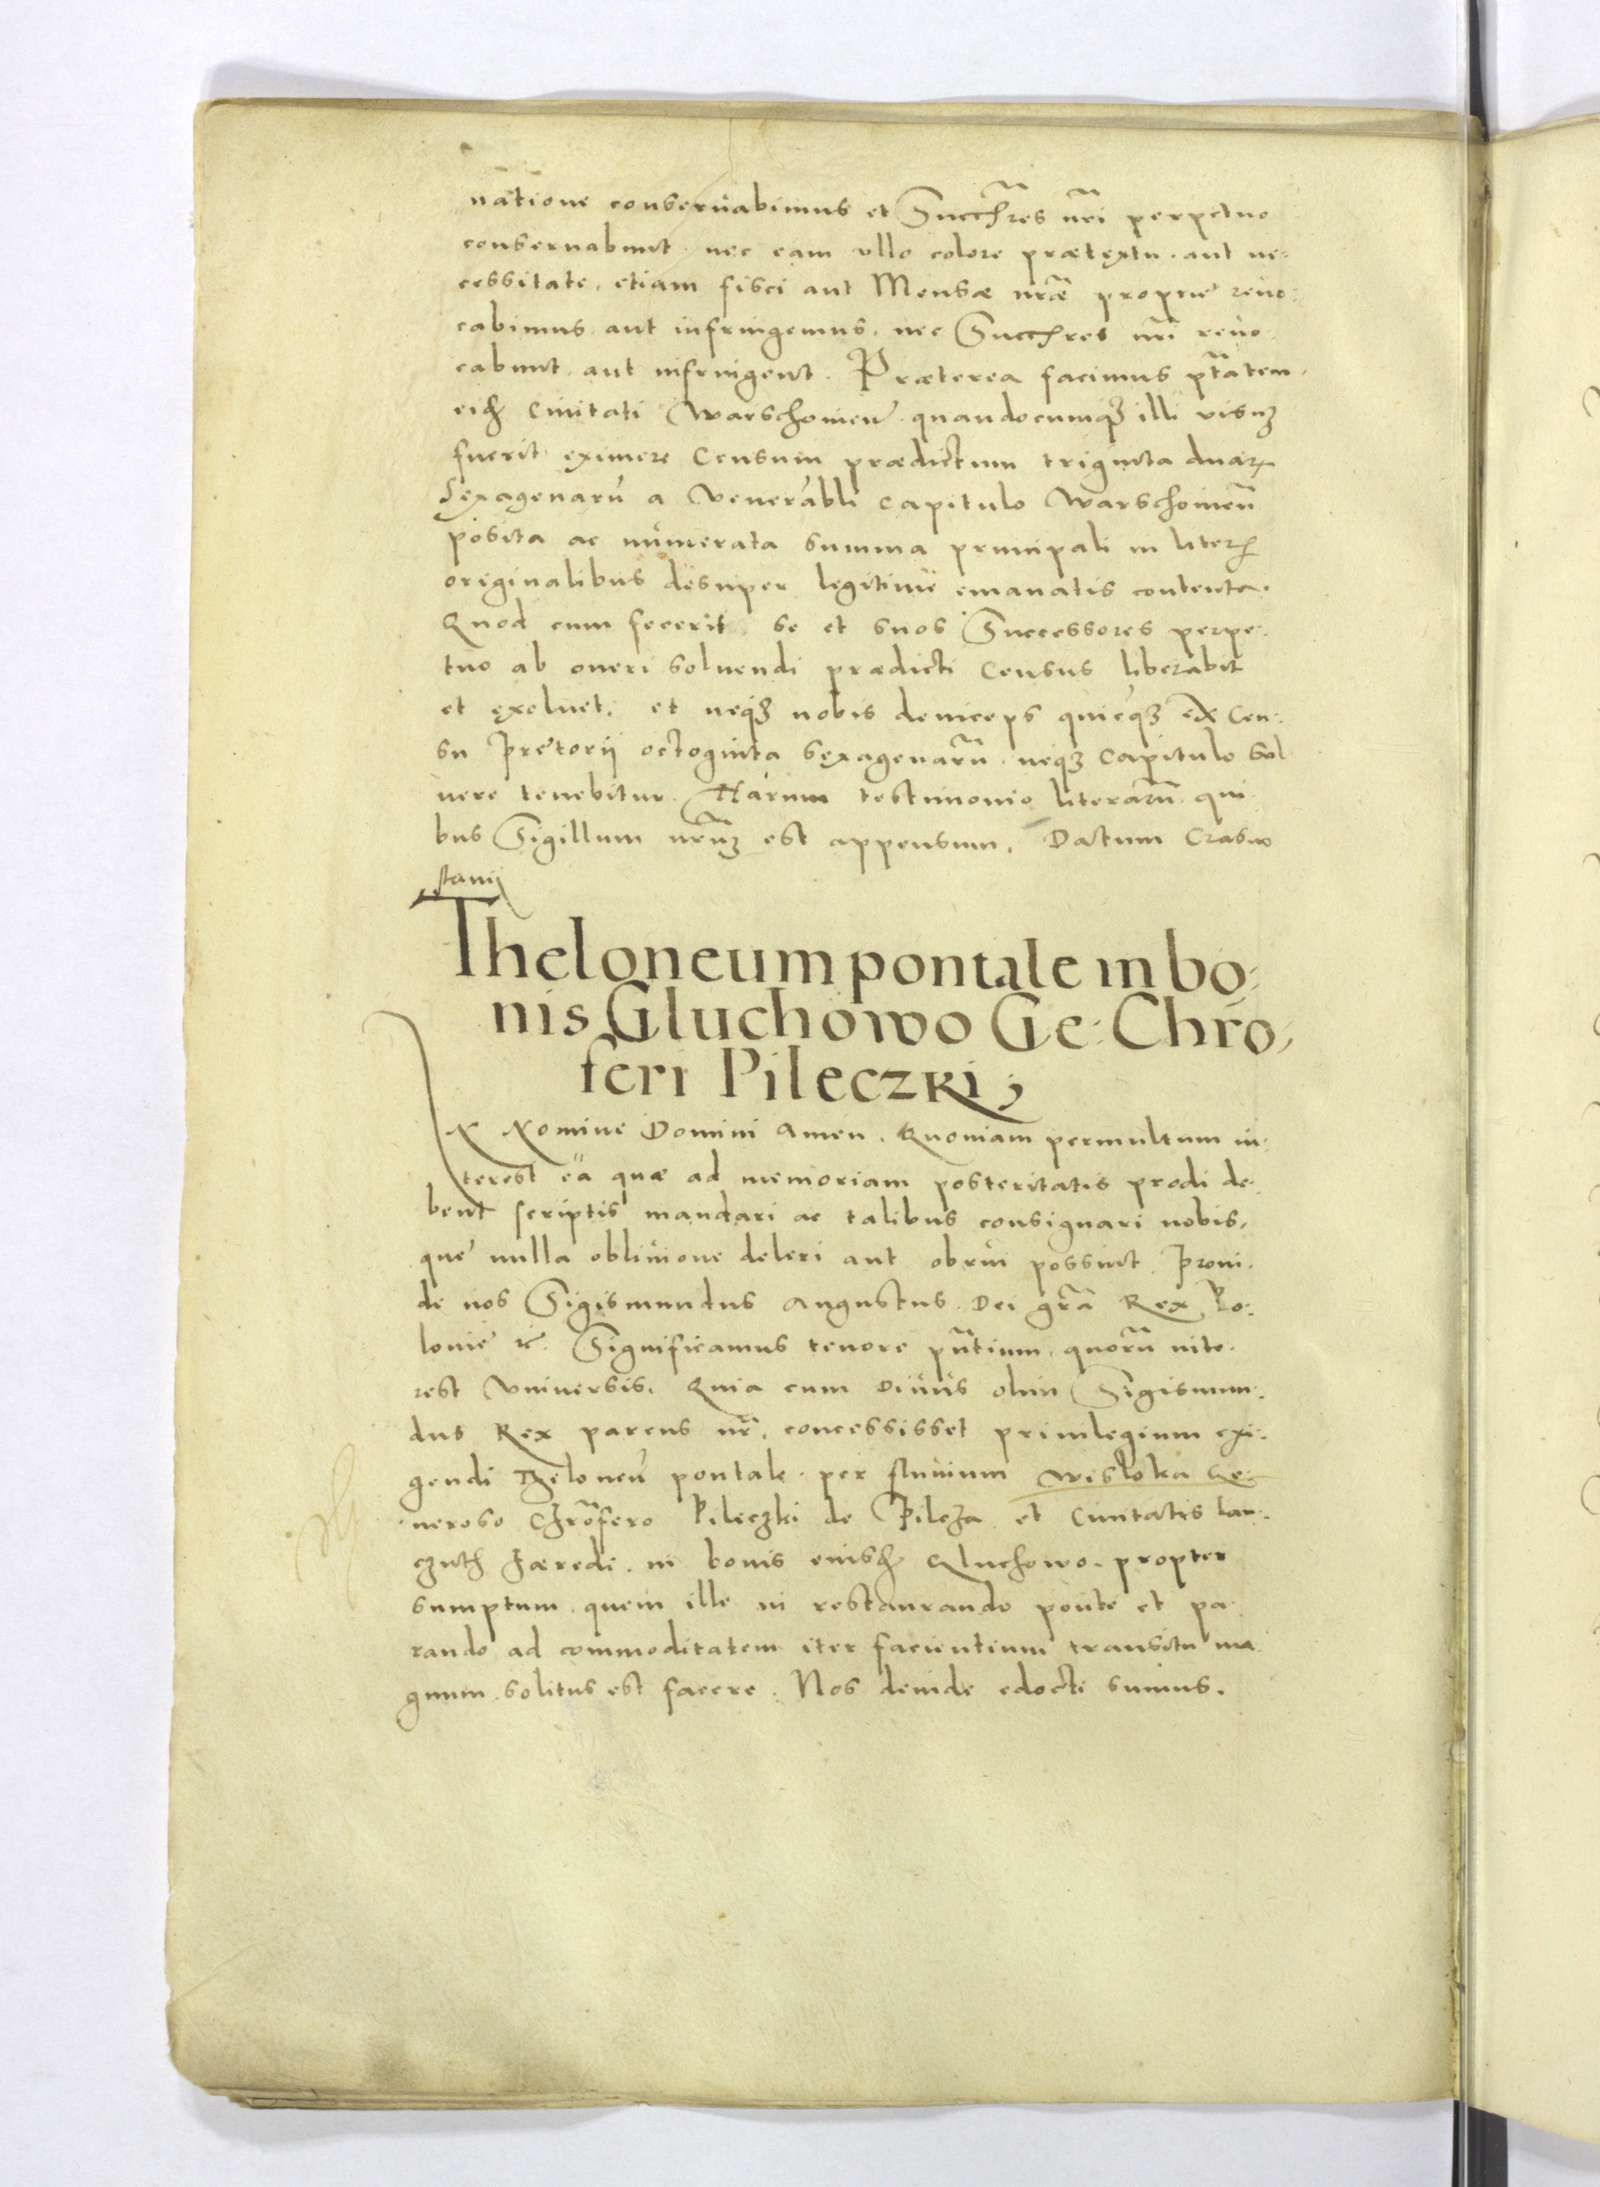 natione conseruabimus et Succr̃es nr̃i perpetuo
conseruabunt. nec eam vllo colore prætextu. aut ne:
cessitate. etiam fisci aut Mensæ nr̃æ proprie reuo:
cabimus aut infringemus. nec Succr̃es nr̃i reuo.
cabunt aut infringent. Præterea facimus ptãtem.
eid ciuitati Warschouien̄ quandocumqꝫ illi visuꝫ
fuerit eximere Censum prædictum triginta duaꝝ
Sexagenarū a Venerabli Capitulo Warschouien̄
posita ac numerata summa principali in literis
originalibus desuper legitime emanatis contenta.
Quod cum fecerit se et suos Successores perpe:
tuo ab oneri soluendi prædicti Census liberabit
et exoluet. et neqꝫ nobis deniceps quicqꝫ ex Cen:
su Pretorij octoginta sexagenarū. neqꝫ Capitulo sol
uere tenebitur. Harum testimonio literarū. qui
bus Sigillum nr̃uꝫ est appensum. Datum Crasno
stauij
Theloneum pontale in bo:
nis Gluchowo Ge: Chrõ,
feri Pileczki;
IN Nomine Domini Amen. Quoniam permultum in:
terest ea quæ ad memoriam posteritatis prodi de:
bent scriptis mandari ac talibus consignari nobis,
que nulla obliuione deleri aut obrui possint. Proin:
de nos Sigismundus Augustus. Dei gr̃a Rex Po:
lonie ꝛc. Significamus tenore pñtium. quorū inte.
rest Vniuersis. Quia cum Diuus olim Sigismun:
dus Rex parens nr̃. concessisset priuilegium exi:
gendi theloneū pontale. per fluuium Wisloka Ge:
neroso Chrõfero Pileczki de Pilcza et Ciuitatis Lan:
czuth hæredi. in bonis eiusd Gluchowo. propter
sumptum. quem ille in restaurando ponte et pa
rando ad commoditatem iter facientium transitu ma
gnum. solitus est facere. Nos deinde edocti sumus.